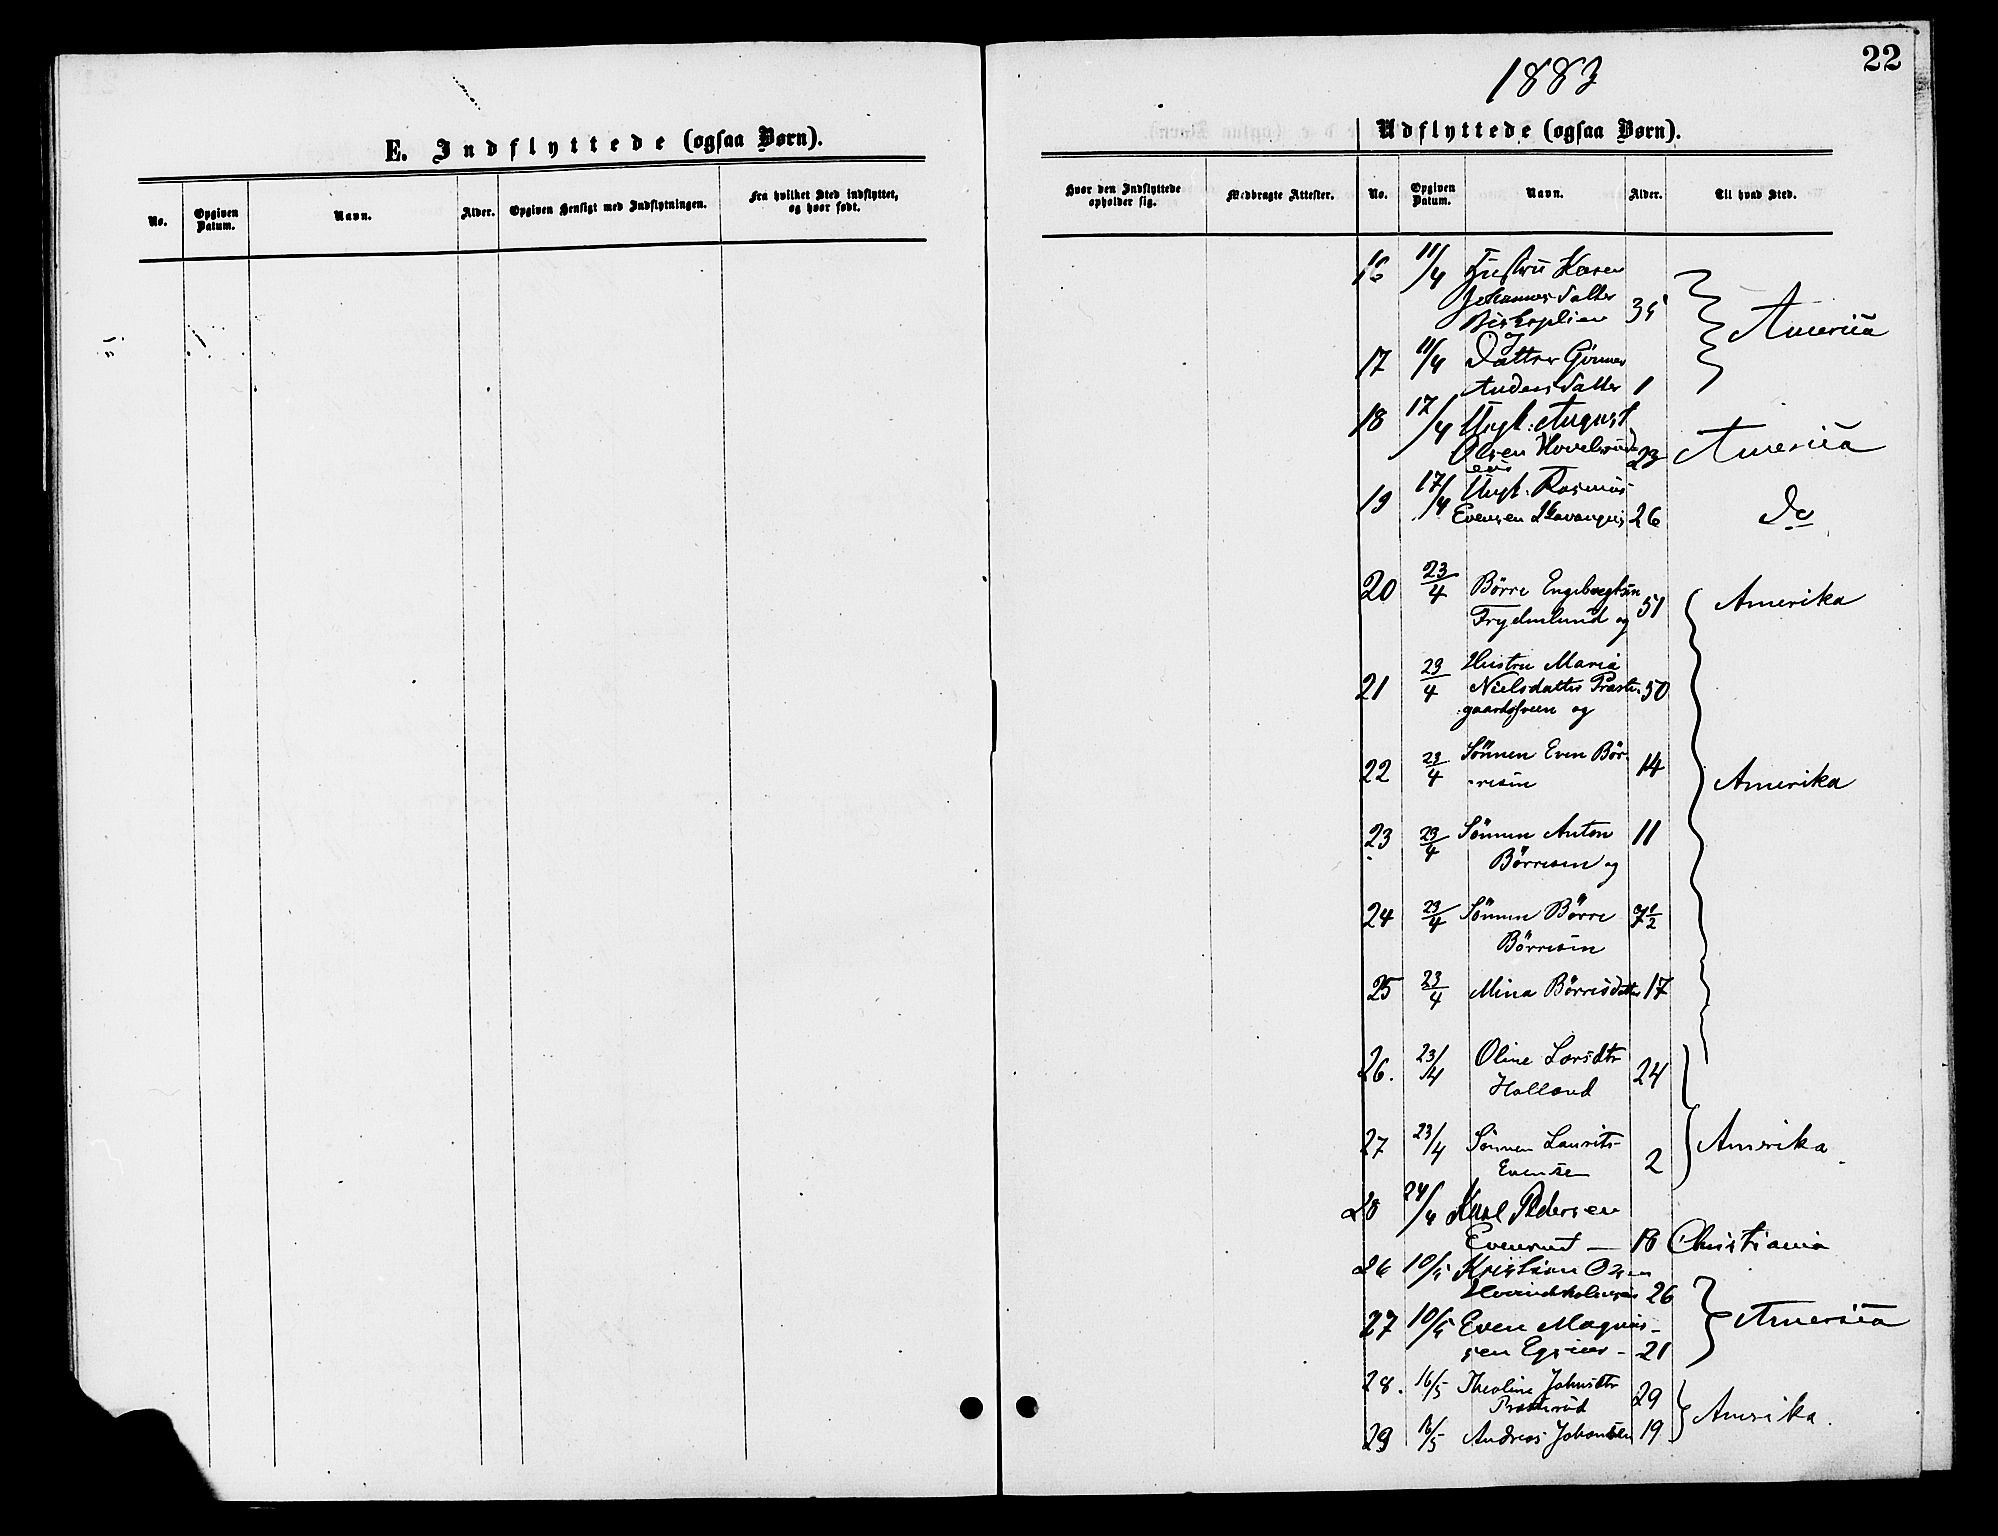 22
1883
E. Indflyttede (ogsaa Børn).
No.
Opgiven Datum.
Navn.
Alder.
Opgiven Hensigt med Indflytningen.
Fra hvilket Sted indflyttet, og hvor født.
Udflyttede (ogsaa Børn).
Hvor den Indflyttede opholder sig.
Medbragte Attester.
No.
Opgiven Datum.
Navn.
Alder.
Til hvad Sted.
16 11/4 Hustru Karen
Johannesdatter
35 America
17 11/4 Datter
Andersdatter 1
18 17/4 Ungk. August
Olsen 23 America
19 17/4 Ungk. Rasmus
Evensen 26 Do
20 23/4 Børre Engebregtsen
Frydenlund og 51 Amerika
21 23/4 Hustru Maria
Nielsdatter Præste- 50
gaardsveen og
22 23/4 Sønnen Even Bør- 14 Amerika
resen
23 23/4 Sønnen Anton 11
Børresen og
24 23/4 Sønnen Børre 7½
Børresen
25 23/4 Mina Børresdatter 17
26. 23/4 Oline Larsdtr
Holland 24
27 23/4 Sønnen Laurits
Evensen 2 Amerika.
28 24/4 Karl Pedersen
Evensrud — 18 Christiania
26 10/5 Kristian Olsen
26
27 10/5 Even Magnus-
sen — 21 America
28. 16/5 Theoline Johnsdtr
29
29 16/5 Andreas Johansen 19 Amerika.